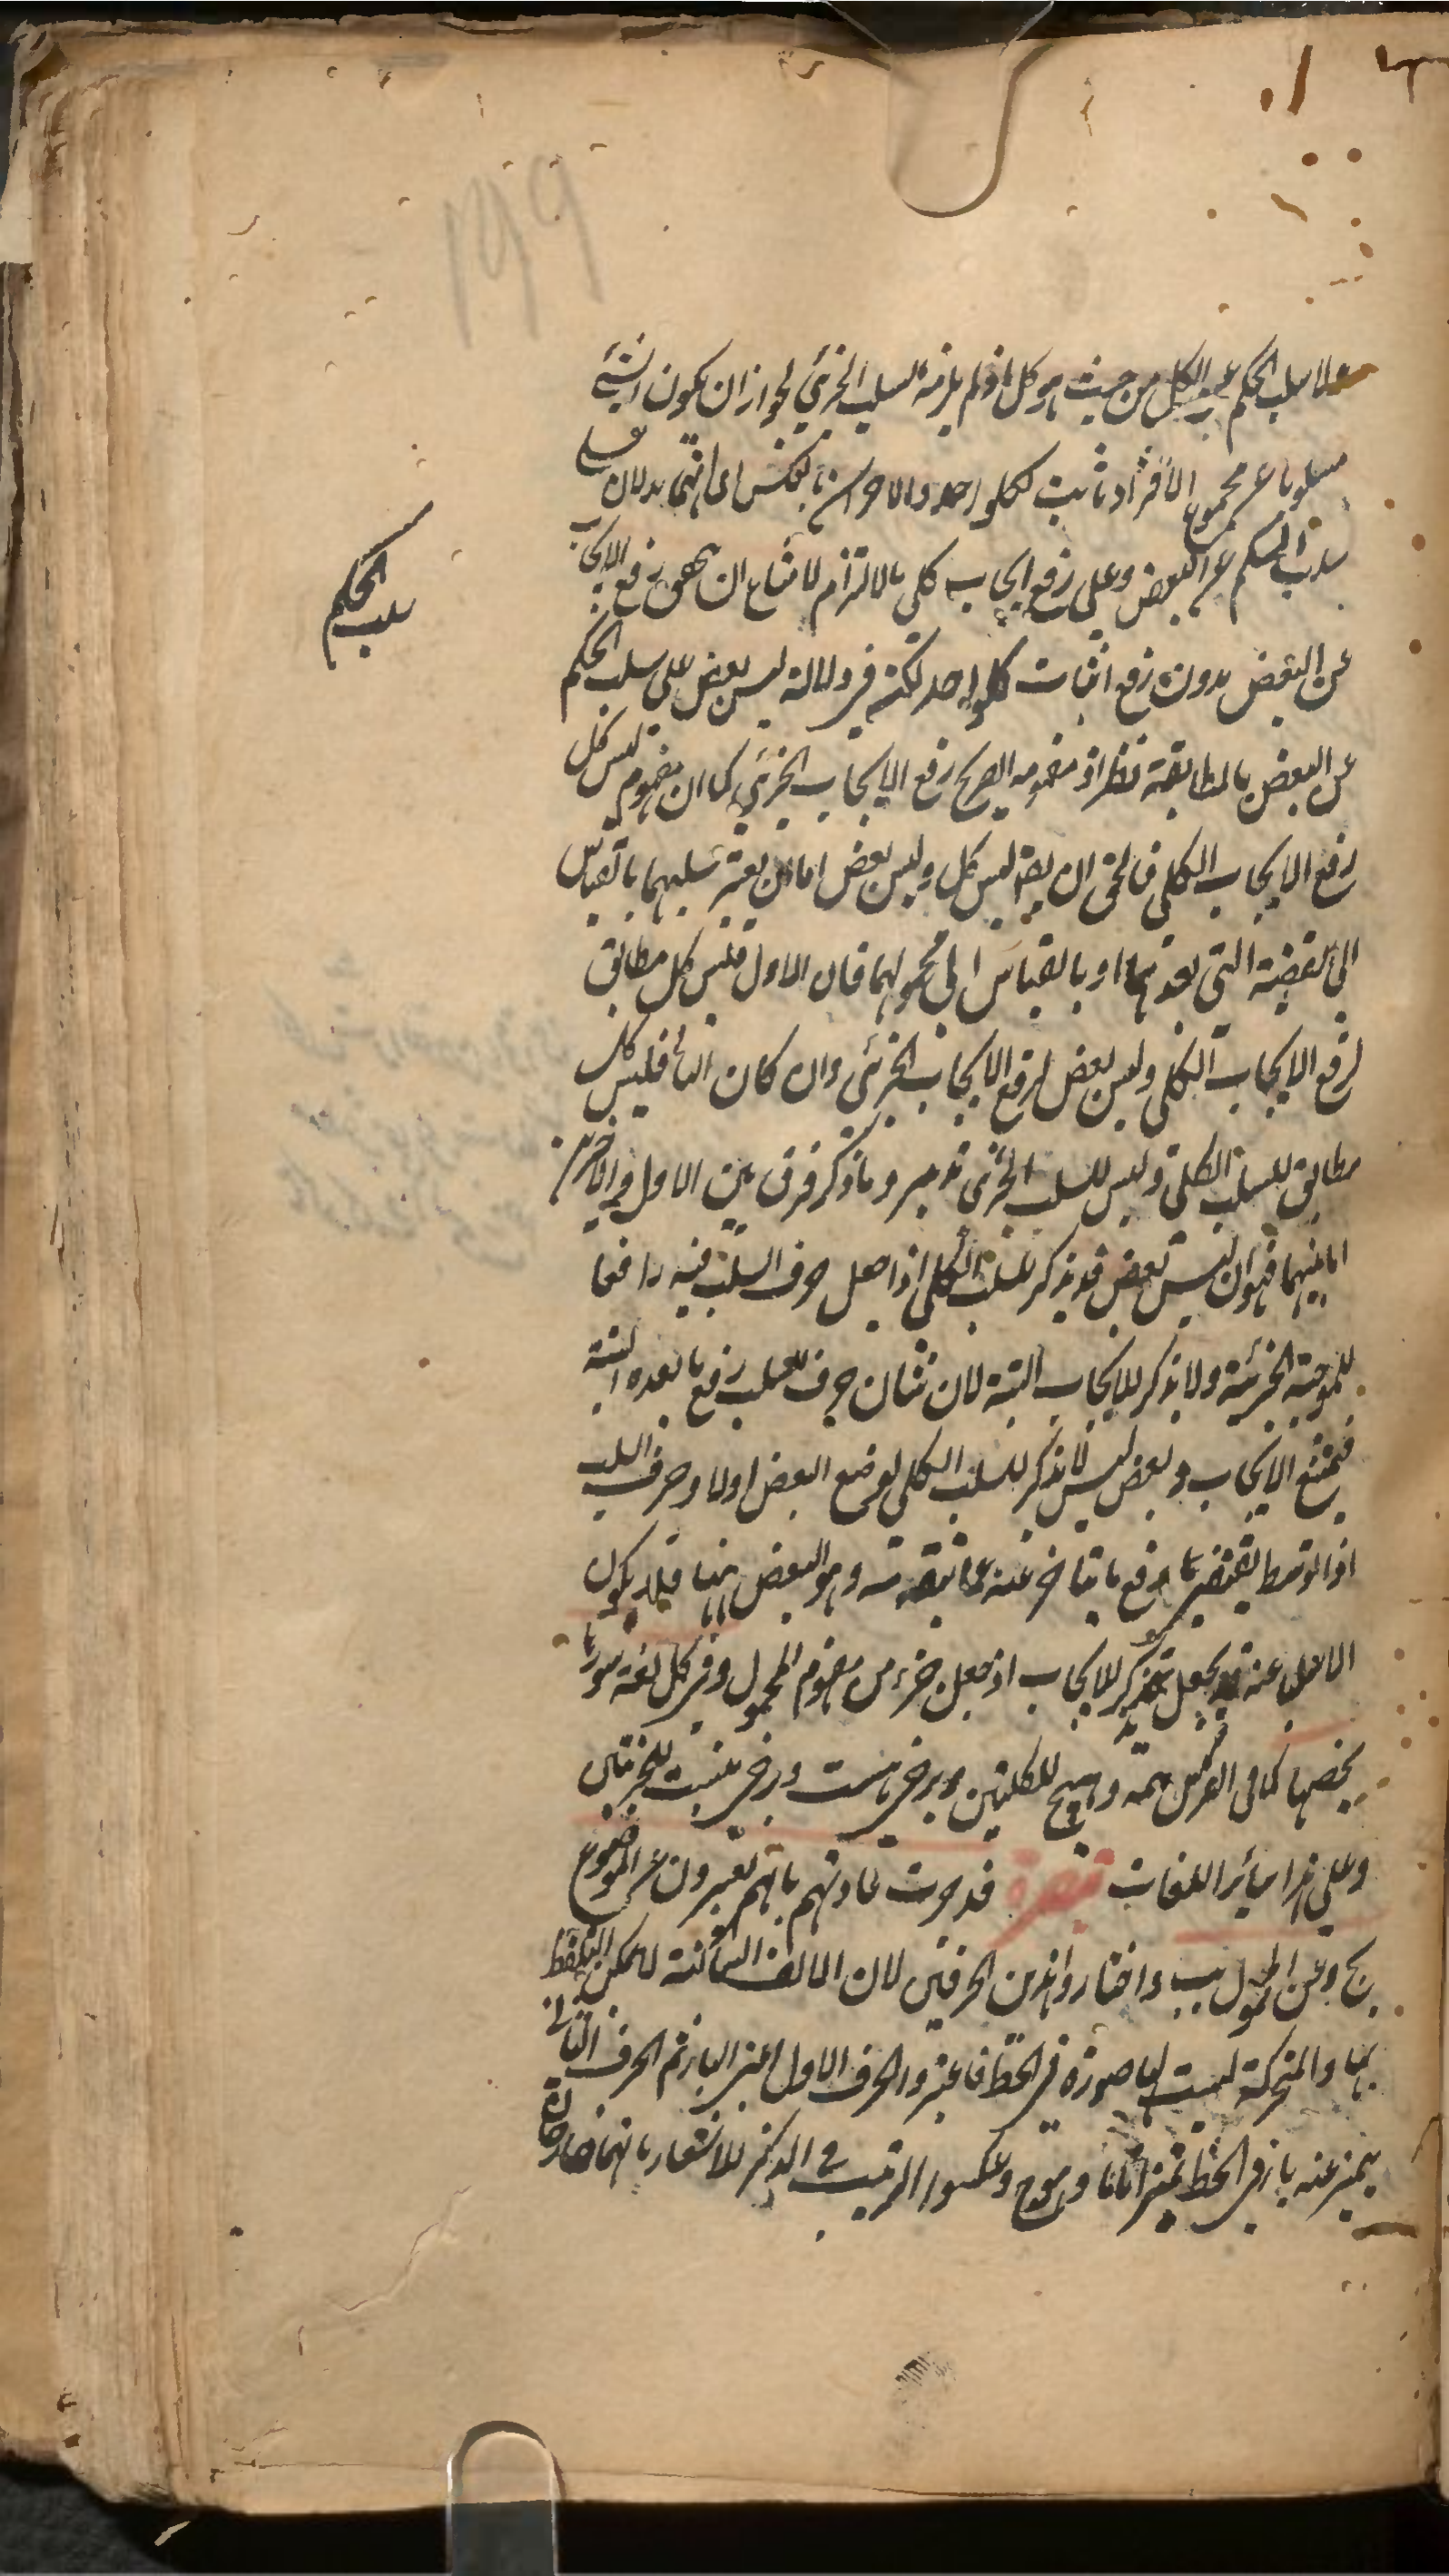 ١٩٩
لا سلب الحكم عن الكل من حيث هو كل اذ لم يلزمه السلب الجزئي لجواز ان يكون الشئ
مسلوبا عن مجموع الافراد ثابت لكلواحد والاخران بالعكس اى انهما يدلان على
سلب الحكم عن البعض وعلى رفع ايجاب كلى بالالتزام لامتناع ان رفع الايجاب
عن البعض بدون رفع اثبات كلواحد لكنه فى دلالة ليس بعض على سلب الحكم
عن البعض بالمطابقة نظر اذ مفهومه الصريح رفع الايجاب الجزئي كما ان مفهوم ليس كل
رفع الايجاب الكلى فالحق ان يقال ليس كل وليس بعض اما ان يعتبر سلبهما بالقياس
الى القضية التى بعدهما او بالقياس الى محمولهما فان الاول فليس كل مطابق
لرفع الايجاب الكلى وليس بعض لرفع الايجاب الجزئى وان كان الثانى فليس كل
مطابق للسلب الكلى وليس للسلب الجزئى تدبر وما ذكر فرق بين الاول والاخيرين
اما بينهما فهو ان ليس بعض قد يذكر للسلب الكلى اذا جعل حرف السلب فيه رافعا
للموجبة الجزئية ولا يذكر للايجاب البتة لان شان حرف السلب رفع ما بعده البتة
فيمتنع الايجاب وبعض ليس لا يذكر للسلب الكلى لوضع البعض اولا وحرف السلب
اذا توسط يقتضى رفع ما يتاخر عنه عما يتقدمه وهو البعض هنا فلا يكون
الا سلب عنه يجعل يذكر للايجاب اذ جعل جزء من مفهوم المحمول وفى كل لغة سور
يخصها كما فى الفرس همه وهيچ للكليتين وبرخى هست وبرخى نيست للجزئيتين
وعلى هذا سائر اللغات تبصرة قد جرت عادتهم بانهم يعبرون عن الموضوع
بج وعن المحمول بب واختاروا هذين الحرفين لان الالف الساكنة لا يمكن التلفظ
بها والمتحركة ليست لها صورة فى الخط فاعتبروا الحرف الاول اعنى الباء ثم الحرف الثانى
يتميز عنه بان فى الخط تميزا تاما وهو ج وعكسوا الترتيب فى الذكر للاشعار بانهما خارجان
سلب الحكم